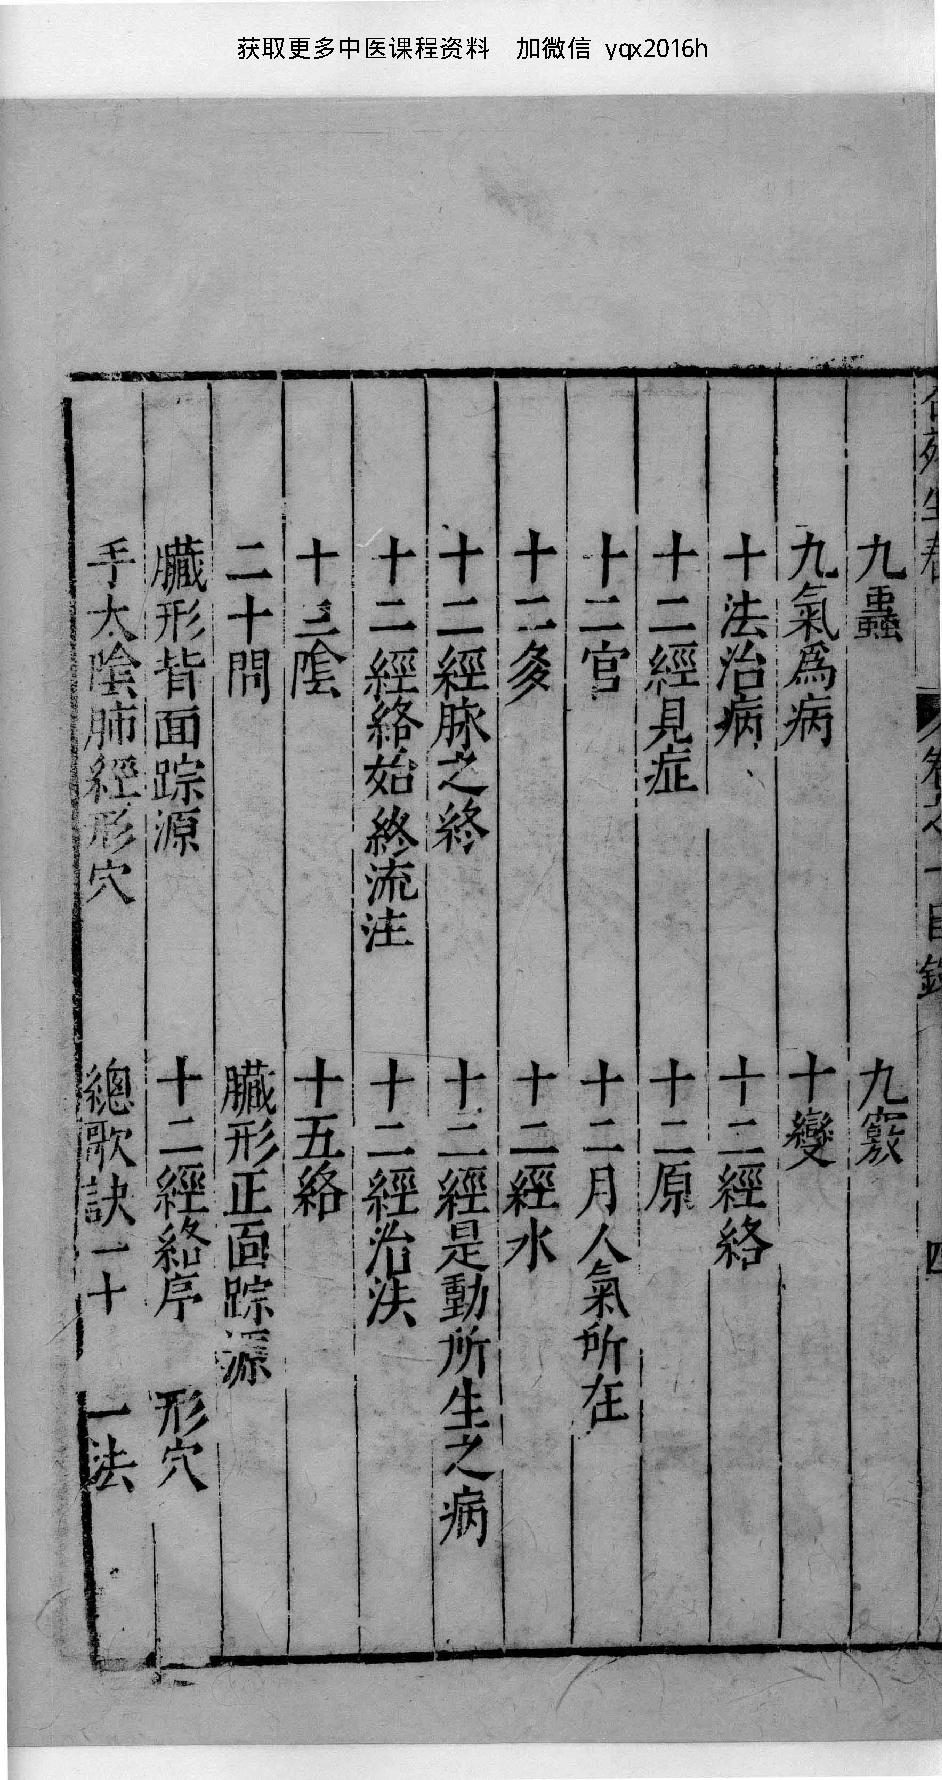 获取更多中医课程资料 加微信 yqx2016h
卷之一目錄 四
九蟲 九竅
九氣爲病 十變
十法治病 十二經絡
十二經見症 十二原
十二官 十二月人氣所在
十二多 十二經水
十二經脉之終 十二經是動所生之病
十二經絡始終流注 十二經治法
十三陰 十五絡
二十問 臟形正面踪源
臟形背面踪源 十二經絡序 形穴
手太陰肺經形穴 總歌訣一十一法